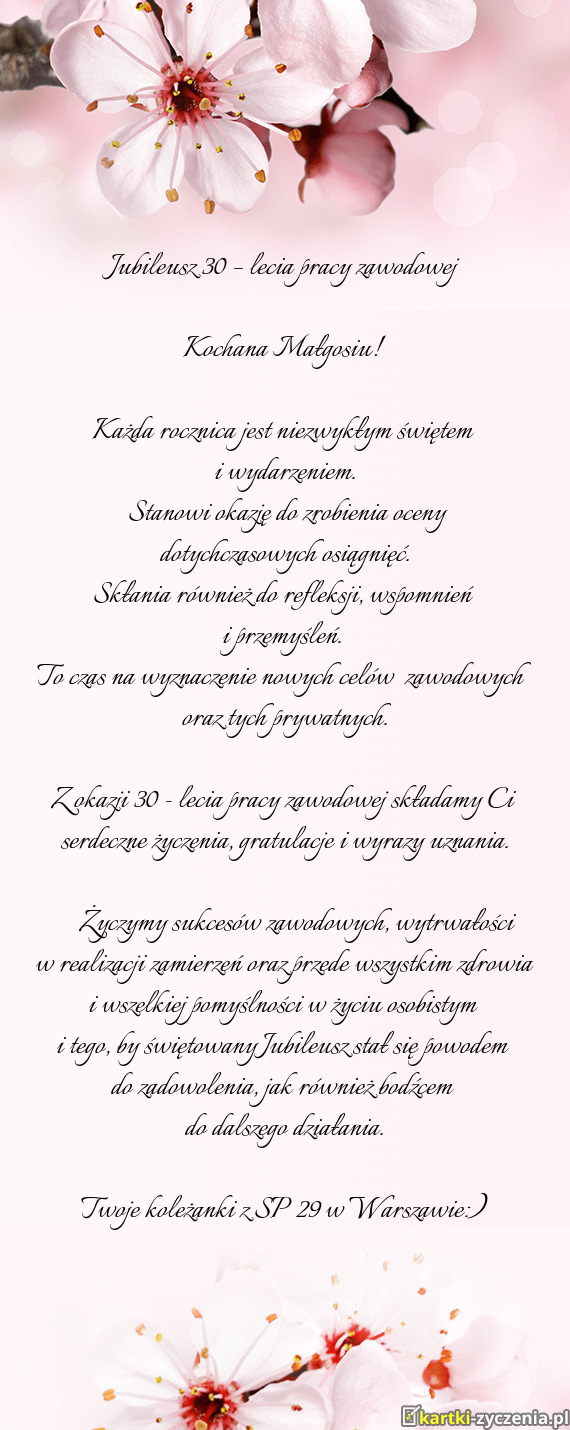 Jubileusz 30 – lecia pracy zawodowej
Kochana Małgosiu!
Każda rocznica jest niezwykłym świętem
i wydarzeniem.
Stanowi okazję do zrobienia oceny
dotychczasowych osiągnięć.
Skłania również do refleksji, wspomnień
i przemyśleń.
To czas na wyznaczenie nowych celów zawodowych
oraz tych prywatnych.
Z okazji 30 - lecia pracy zawodowej składamy Ci
serdeczne życzenia, gratulacje i wyrazy uznania.
Życzymy sukcesów zawodowych, wytrwałości
w realizacji zamierzeń oraz przede wszystkim zdrowia
i wszelkiej pomyślności w życiu osobistym
i tego, by świętowany Jubileusz stał się powodem
do zadowolenia, jak również bodźcem
do dalszego działania.
Twoje koleżanki z SP 29 w Warszawie:)
kartki-zyczenia.pl